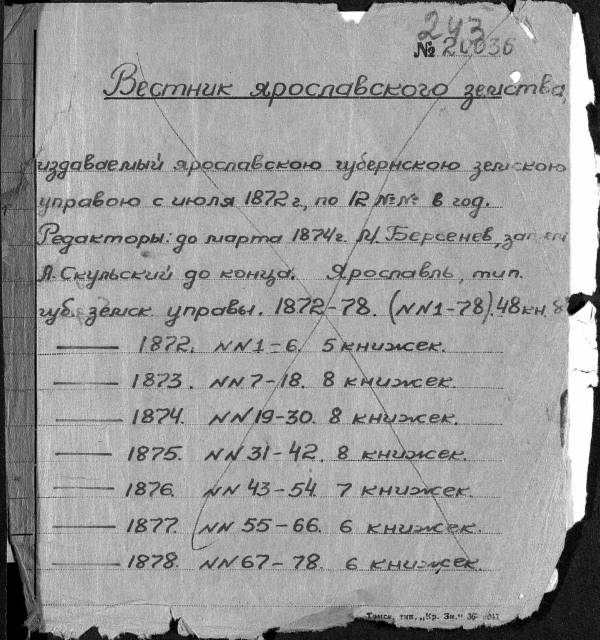 243
№ 20036
Вестник ярославского земства,
издаваемый ярославскою губернскою земскою
управою с июля 1872 г., по 12 №№ в год.
Редакторы: до марта 1874 г. М. Берсенев,
А. Скульский до конца. Ярославль, тип.
губ. земск управы. 1872-78. (NN1-78). 48 кн.
1872. NN1-6. 5 книжек.
1873. NN 7-18. 8 книжек.
1874. NN 19-30. 8 книжек.
1875. NN 31-42. 8 книжек.
1876. NN 43-54. 7 книжек.
1877. NN 55-66. 6 книжек.
1878. NN 67-78. 6 книжек.
Томск, тип. „Кр. Зн." 36